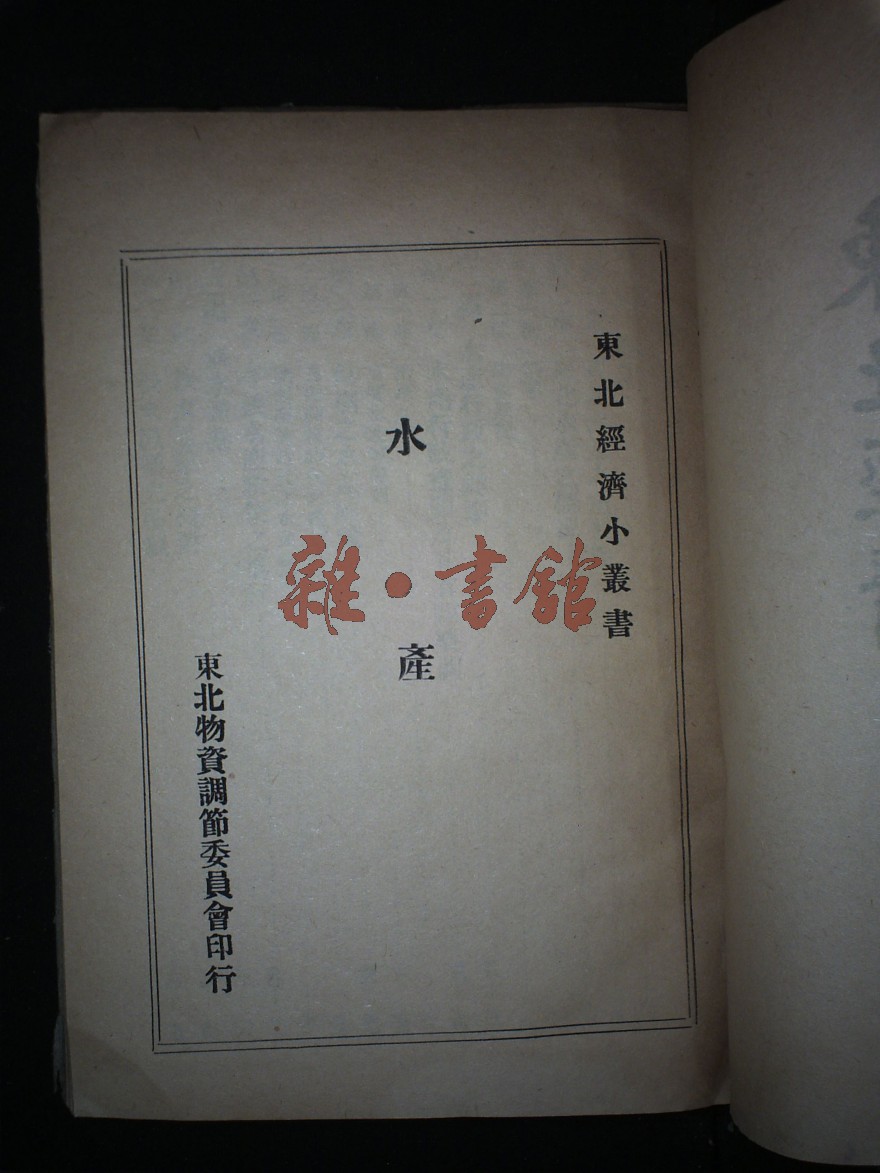 東北經濟小叢書
水產
東北物資調節委員會印行
雜·書館